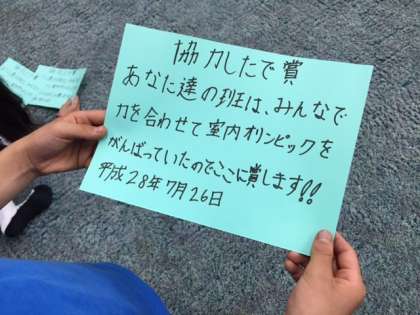 協力したで賞
あなた達の班は、みんなで
力を合わせて室内オリンピックを
がんばっていたのでここに賞します!!
平成28年7月26日